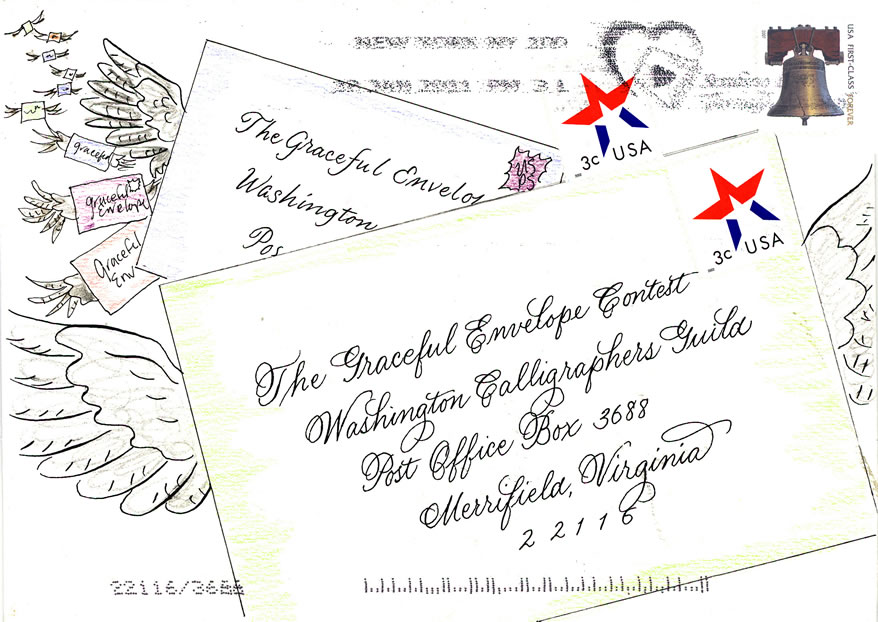 NEW YORK NY 100
USA FIRST-CLASS FOREVER
3c USA
The Graceful Envelo
Washington
Pos
graceful
graceful
Envelope
Graceful
Env
3c USA
The Graceful Envelope Contest
Washington Calligraphers Guild
Post Office Box 3688
Merrifield, Virginia
22116
22116/3688